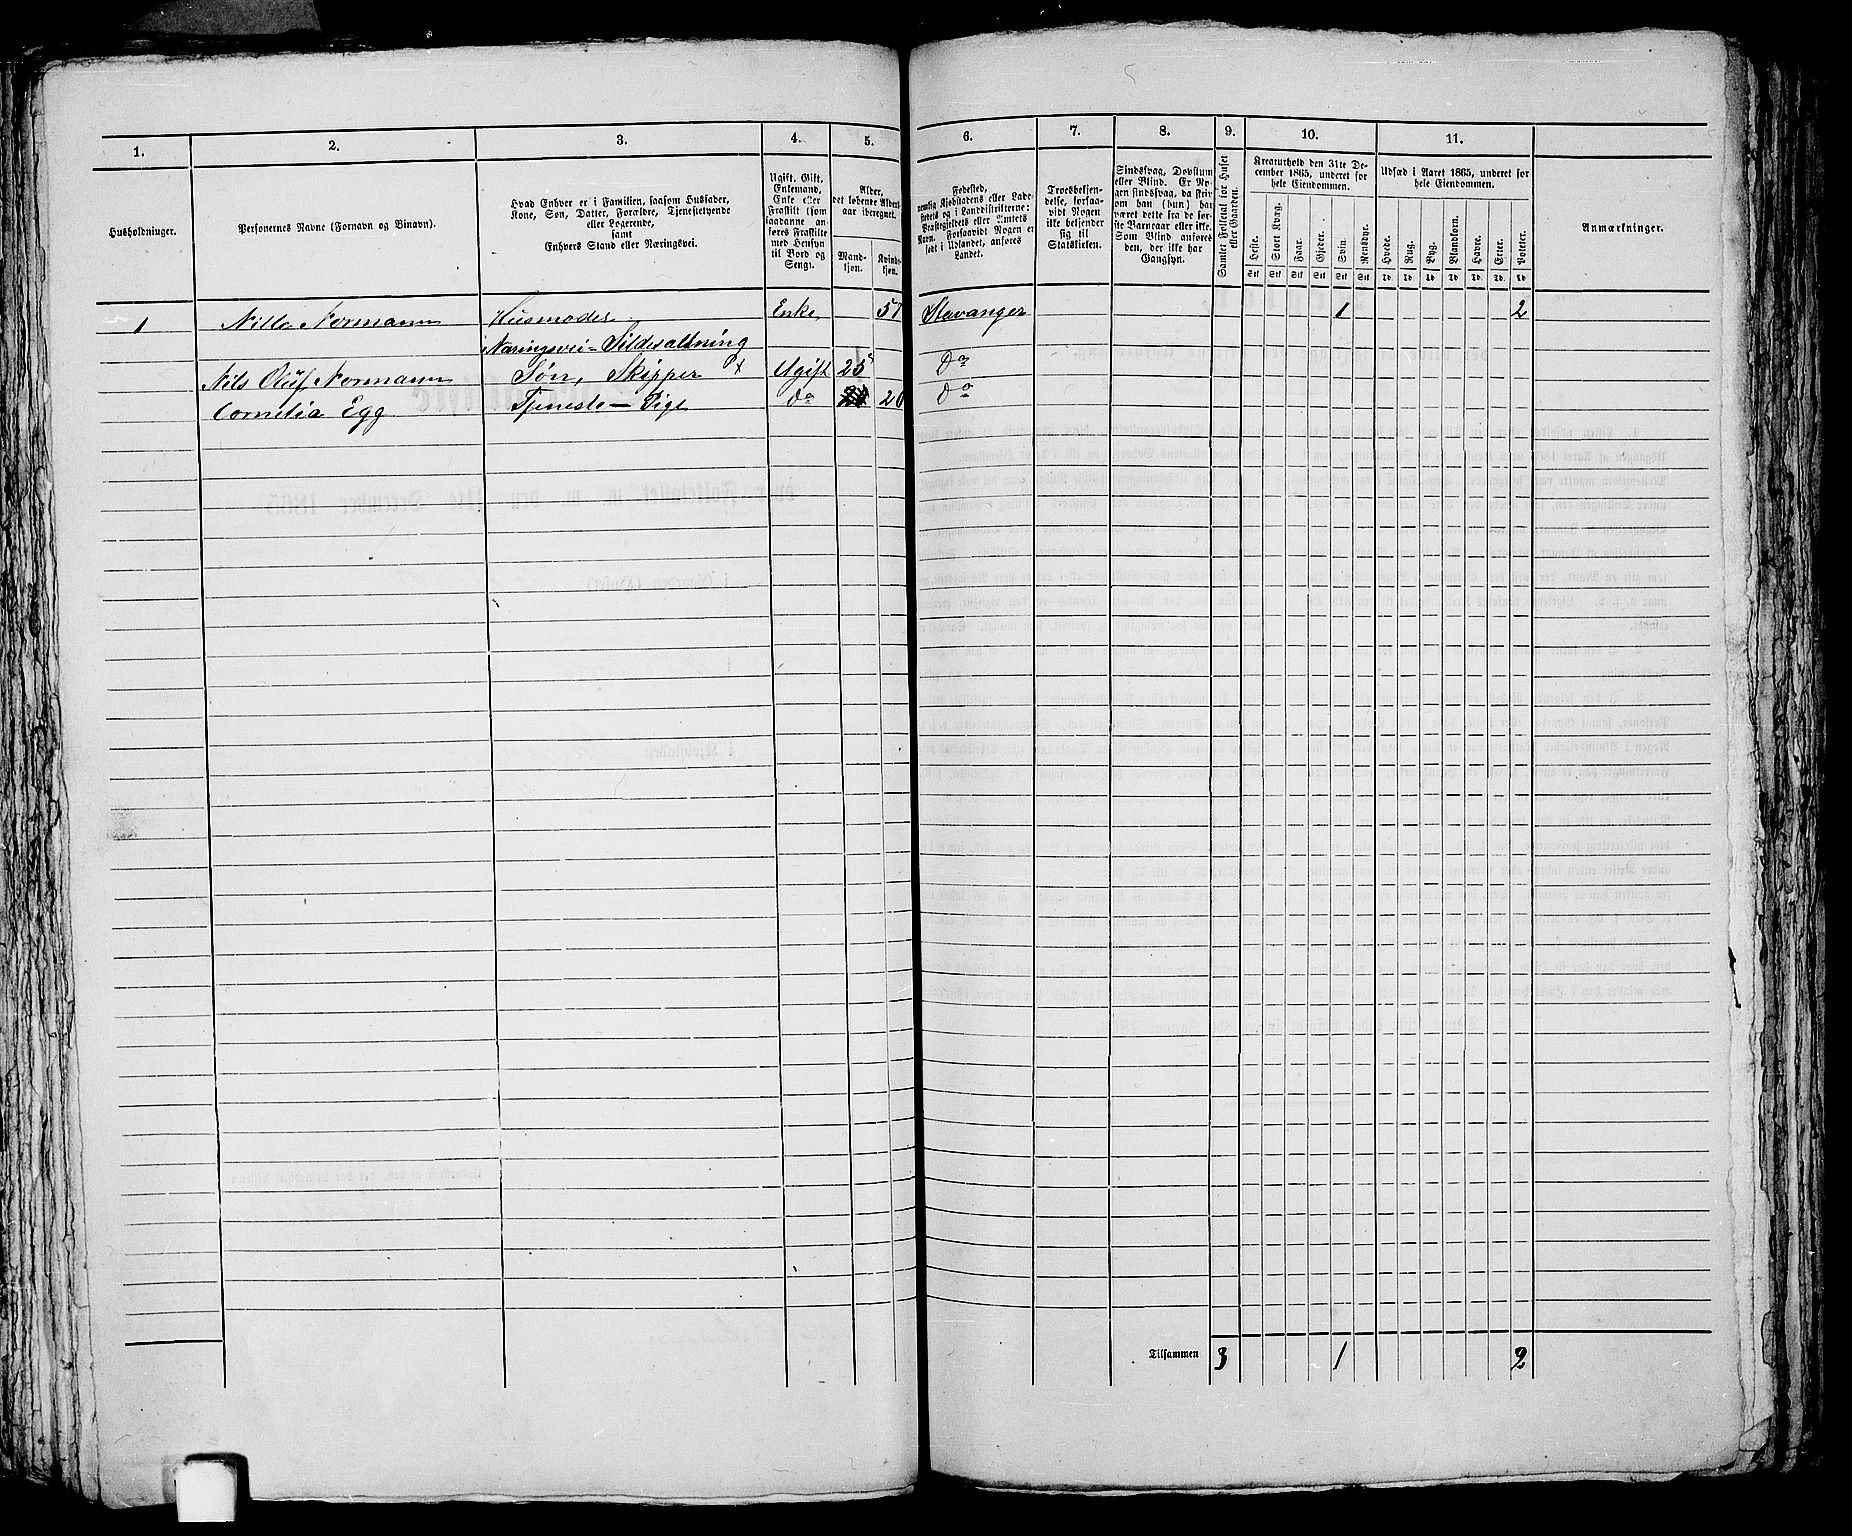 1.
2.
3.
4.
5.
6.
7.
8.
9.
10.
11.
Husholdninger.
Personernes Navne (Fornavn og Binavn).
Hvad Enhver er i Familien, saasom Husfader,
Kone, Søn, Datter, Forældre, Tjenestetyende
eller Logerende,
samt
Enhvers Stand eller Næringsvei.
Ugift, Gift,
Enkemand,
Enke eller
Fraskilt (som
saadanne an-
føres Fraskilte
med Hensyn
til Bord og
Seng).
Alder,
det løbende Alders-
aar iberegnet.
Mand-
kjøn.
Kvinde-
kjøn.
Fødested,
nemlig Kjøbstadens eller Lade-
stedets og i Landdistrikterne:
Præstegjeldets eller Amtets
Navn. Forsaavidt Nogen er
født i Udlandet, anføres
Landet.
Troesbekjen-
delse, forsaa-
vidt Nogen
ikke bekjender
sig til
Statskirken.
Sindssvag, Døvstum
eller Blind. Er No-
gen sindssvag, da friv
om han (hun) har
været dette fra de før-
ste Barneaar eller ikke.
Som Blind anføres
den, der ikke har
Gangsyn.
Samlet Folketal for Huset
eller Gaarden.
Kreaturhold den 31te De-
cember 1865, underet for
hele Eiendommen.
Heste.
Stort Kvæg.
Faar.
Gjeder.
Svin.
Rensdyr.
Stk Stk Stk Stk Stk Stk
Udsæd i Aaret 1865, underet for
hele Eiendommen.
Hvede.
Rug.
Byg.
Blandkorn.
Havre.
Erter.
Poteter.
Td. Td. Td. Td. Td. Td. Td.
Anmærkninger.
1 Nilla Normann Husmoder Enke 57 Stavanger 1 2
Næringsvei = Sildesaltning
Nils Oluf Normann Søn, Skipper Ugift 25 Do
Cornelia Egg Tjeneste-Pige Do 20 Do
Tilsammen 3 1 2